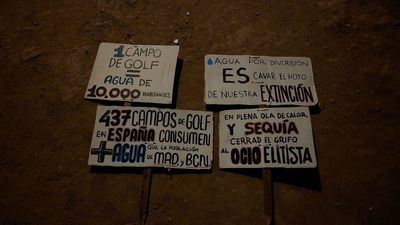 1 CAMPO
DE GOLF
=
AGUA DE
10.000 HABITANTES
AGUA POR DIVERSIÓN
ES CAVAR EL HOYO
DE NUESTRA EXTINCIÓN
437 CAMPOS DE GOLF
EN ESPAÑA CONSUMEN
+ AGUA QUE LA POBLACIÓN
DE MAD. y BCN.
EN PLENA OLA DE CALOR
Y SEQUÍA
CERRAD EL GRIFO
AL OCIO ELITISTA